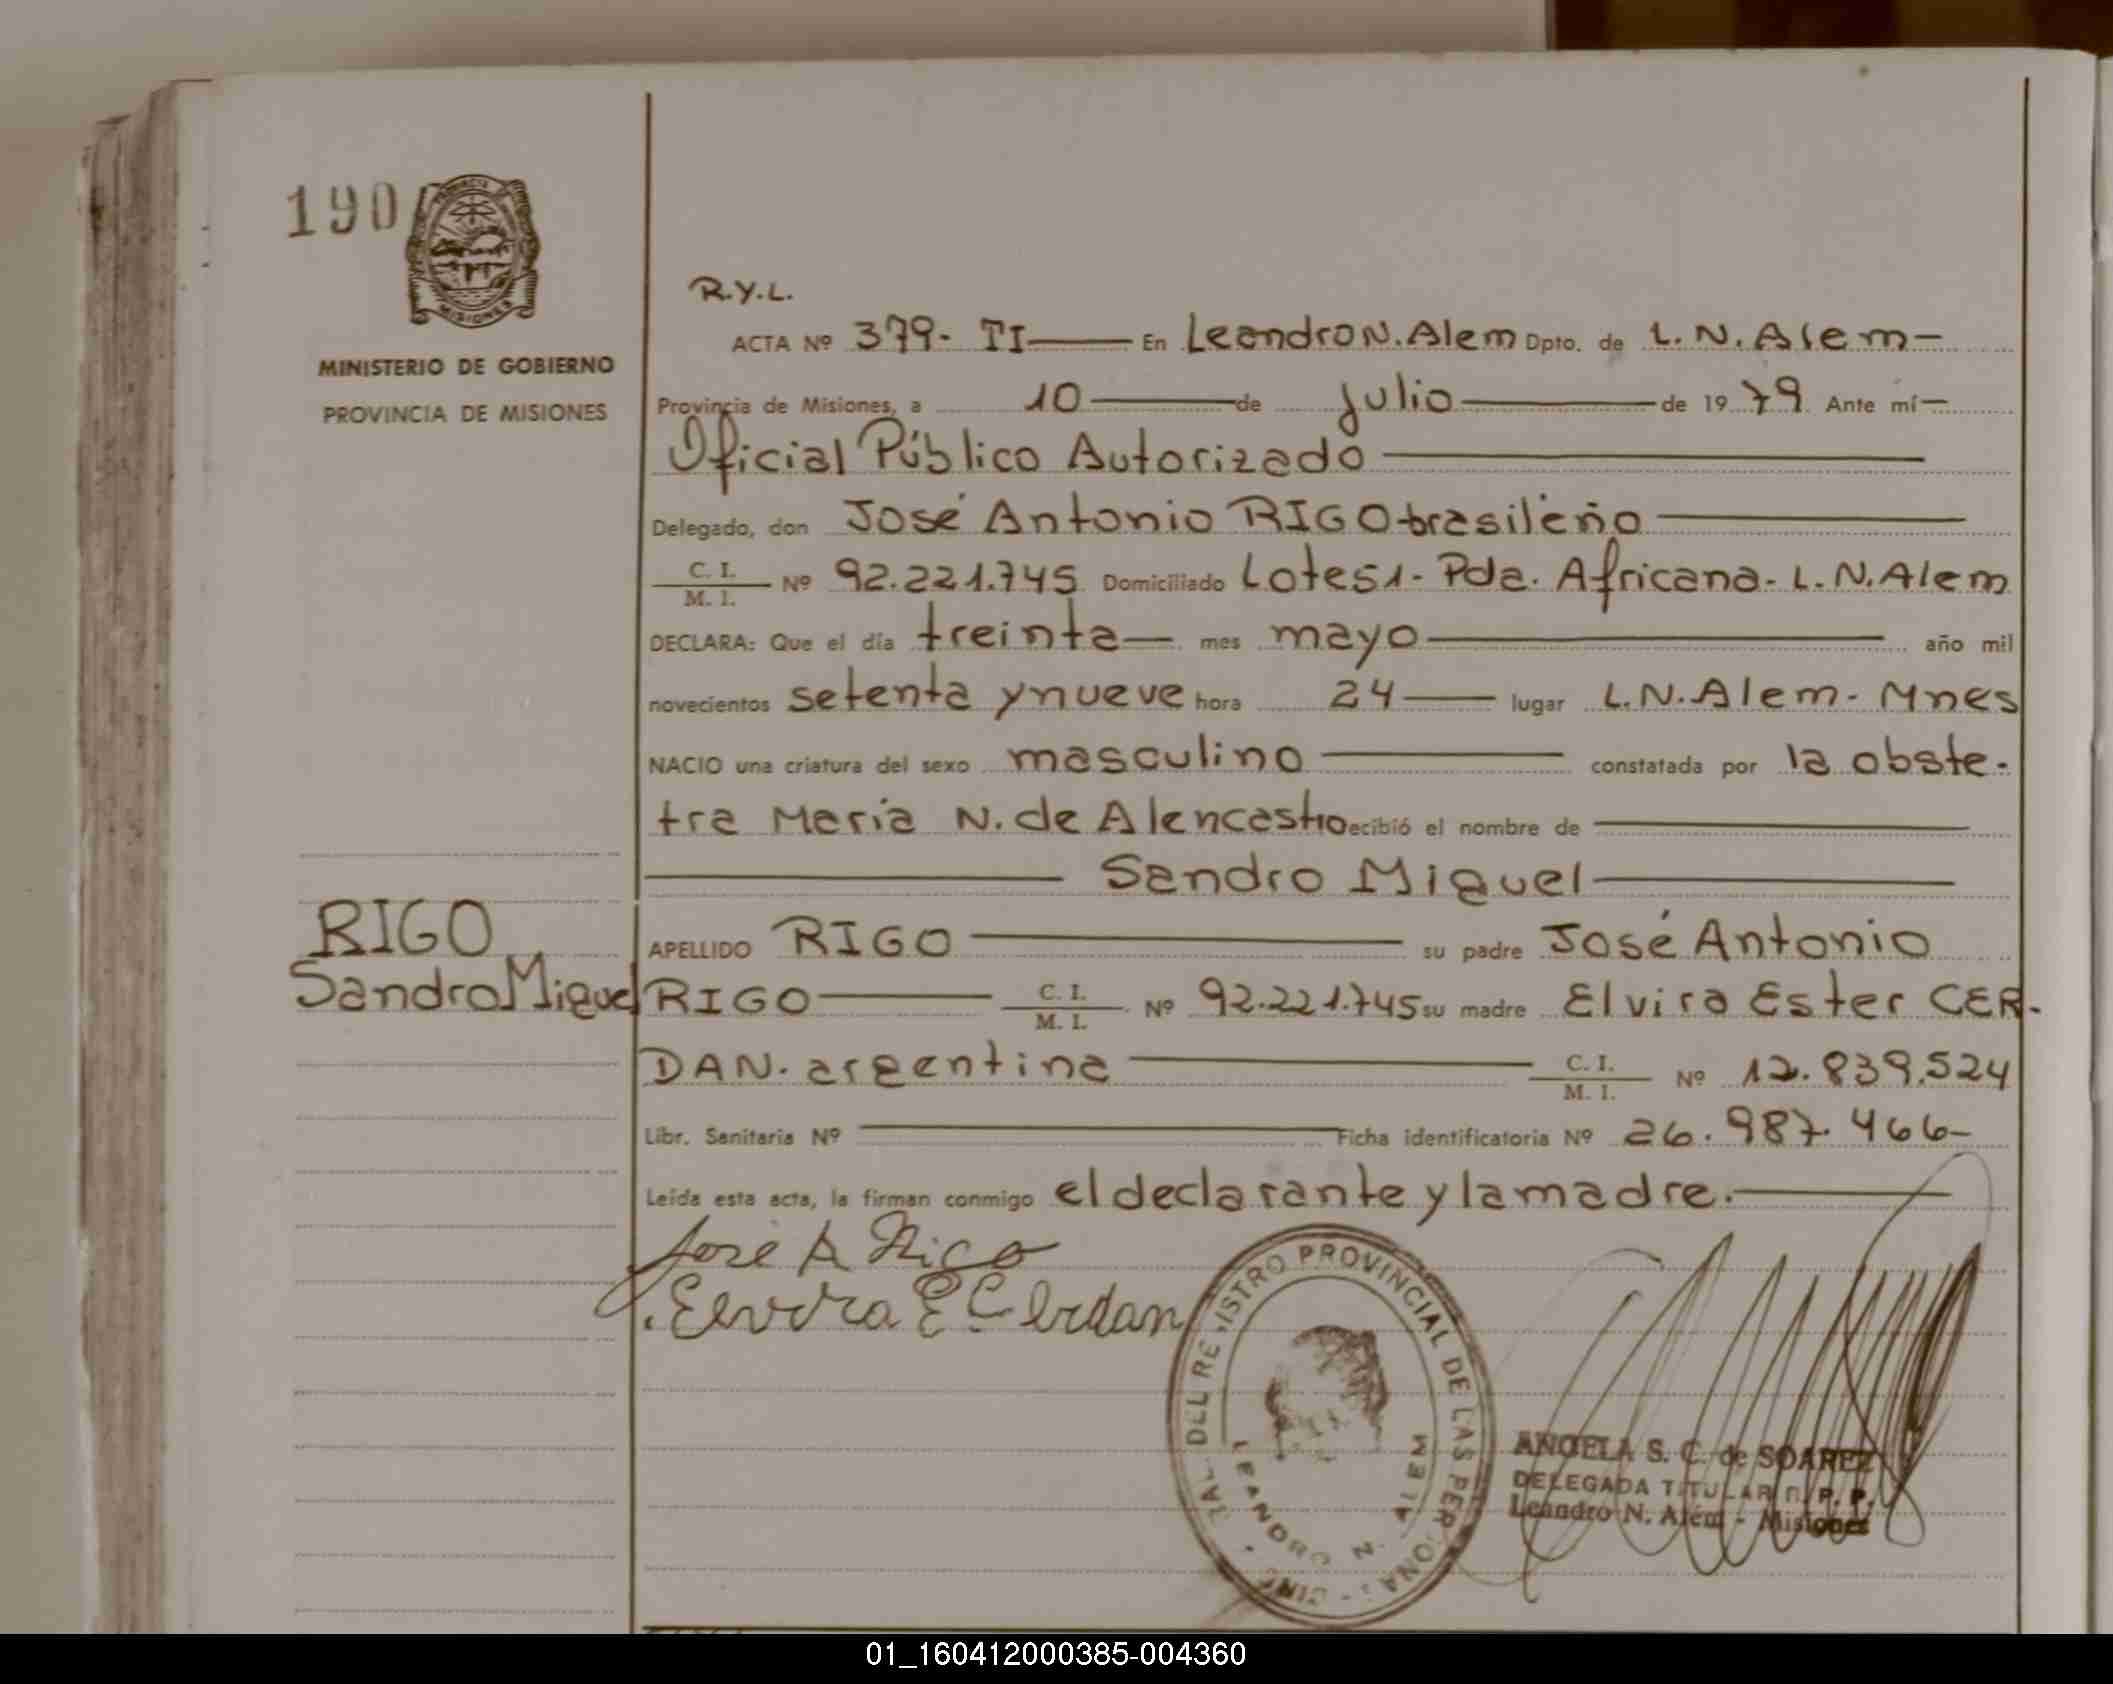 190
PROVINCIA
MISIONES
MINISTERIO DE GOBIERNO
PROVINCIA DE MISIONES
R.Y.L.
ACTA Nº 379- TI En Leandro N. Alem Dpto. de L. N. Alem-
Provincia de Misiones, a 10 de Julio de 1979 Ante mí
Oficial Público Autorizado
Delegado, don José Antonio RIGO-brasileño
C. I. / M. I. Nº 92.221.745 Domiciliado Lote 51- Pda. Africana- L. N. Alem
DECLARA: Que el día treinta mes mayo año mil
novecientos setenta y nueve hora 24 lugar L.N. Alem- Mnes
NACIO una criatura del sexo masculino constatada por la obste-
tra Maria N. de Alencastro ecibió el nombre de
Sandro Miguel
RIGO
Sandro Miguel
APELLIDO RIGO su padre José Antonio
RIGO C. I. / M. I. Nº 92.221.745 su madre Elvira Ester CER-
DAN- argentina C. I. / M. I. Nº 12.839.524
Libr. Sanitaria Nº Ficha identificatoria Nº 26.987.466-
Leída esta acta, la firman conmigo el declarante y la madre.
José A Rigo
Elvira E C Cerdan
DEL REGISTRO PROVINCIAL DE LAS PERSONAS
LEANDRO N. ALEM
ANGELA S. C. de SOAREZ
DELEGADA TITULAR R. P. P.
Leandro N. Alem - Misiones
01_160412000385-004360